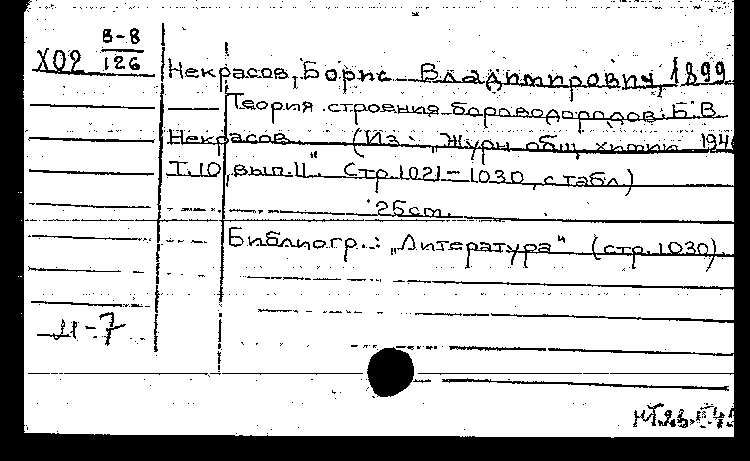 Х02 В-8
126
Некрасов, Борис Владимирович, 1899
Теория строения бороводородов. Б.В.
Некрасов. (Из: „Журн. общ. химии 194
Т.10, вып.11". Стр. 1021-1030, с табл.)
25 см.
Библиогр.: „Литература" (стр. 1030).
И-7